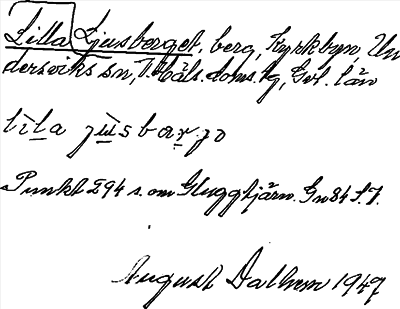 Lilla Ljusberget, berg, Kyrkbyn, Un
dersviks sn, V. Häls. doms. kg, Gvl. län
lila jusbarjo
Punkt 294 s. om Gluggtjärn. Gn 84 f. 7.
August Dalhem 1947